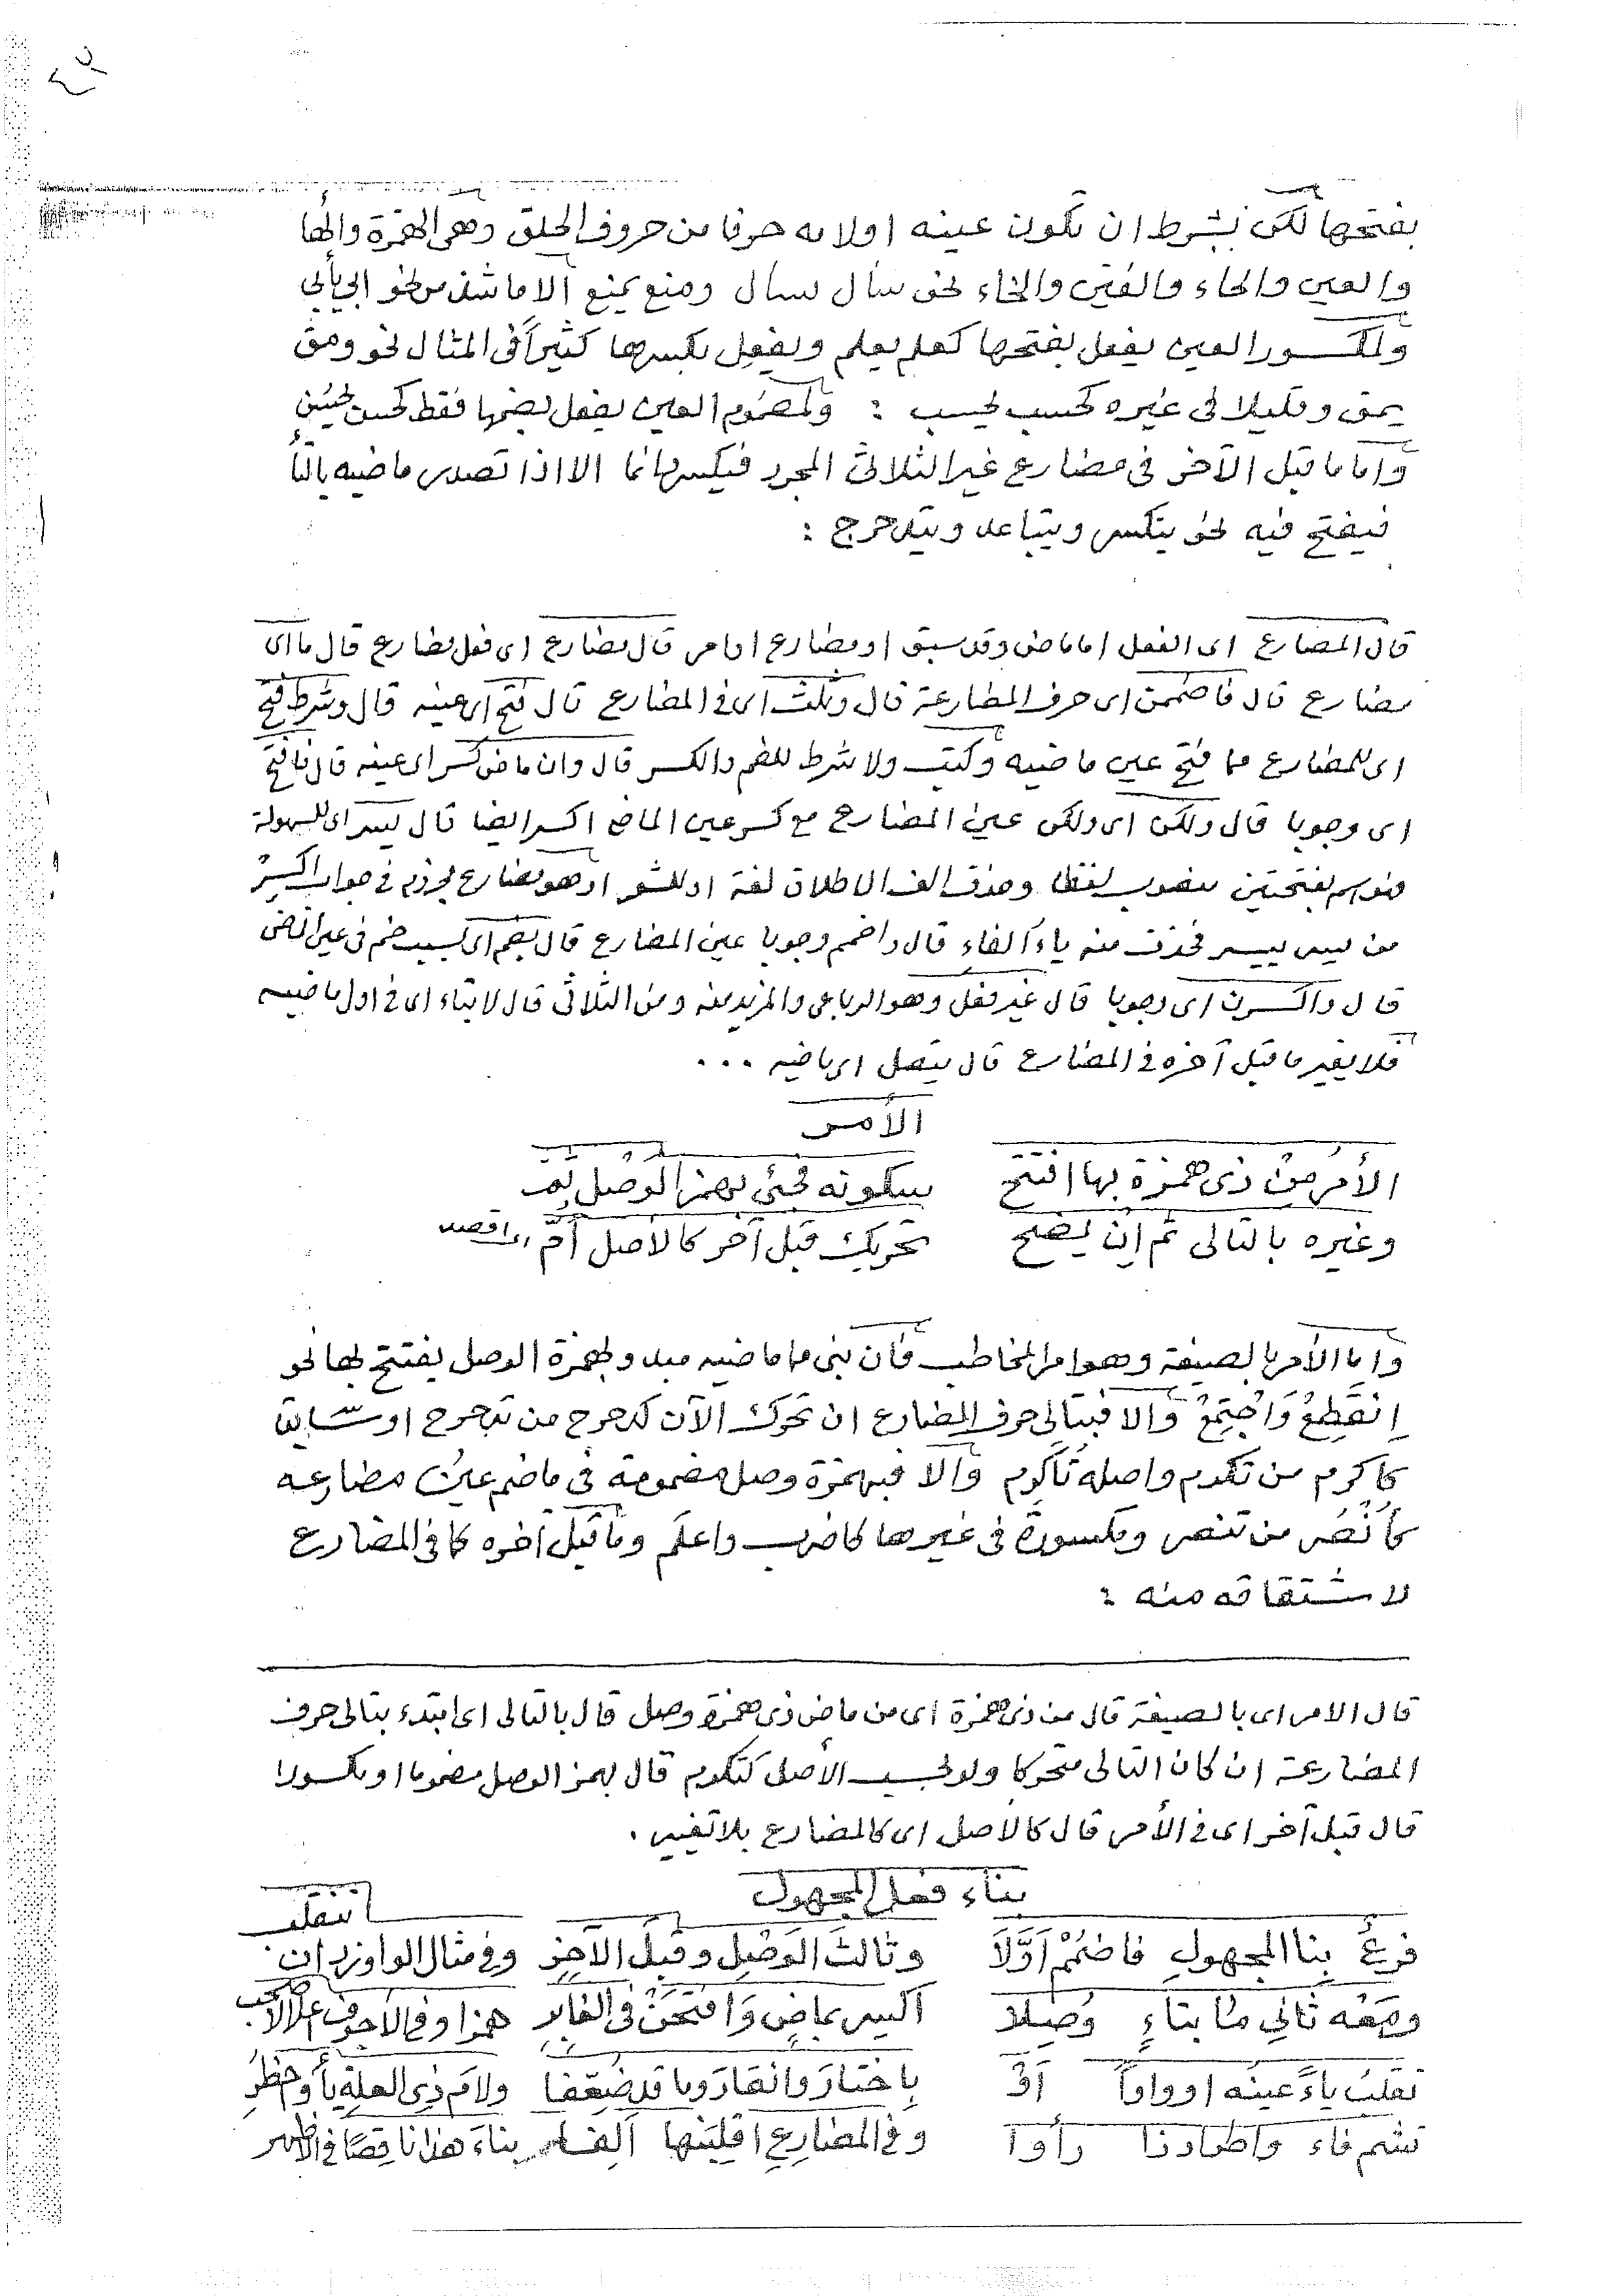 ٤٣
بفتحها لكن بشرط ان تكون عينه اولامه حرفا من حروف الحلق وهى الهمزة والها
والعين والحاء والغين والخاء نحو سأل يسأل ومنع يمنع الا ما شذ من نحو ابى يأبى
ولمكسور العين يفعل بفتحها كعلم يعلم ويفعل بكسرها كثيرا فى المثال نحو ومق
يمق وقليلا فى غيره كحسب يحسب : ولمضموم العين يفعل بضمها فقط كحسن يحسن
وأما ما قبل الآخر فى مضارع غير الثلاثى المجرد فيكسر دائما الا اذا تصدر ماضيه بالتأ
فيفتح فيه نحو يتكسر ويتباعد ويتدحرج :
قال المضارع اى الفعل اما ماض وقد سبق او مضارع او امر قال مضارع اى فعل مضارع قال ما اى
مضارع قال فاضممن اى حرف المضارعة قال وثلث اى فى المضارع قال فتح اى عينه قال وشرط فتح
اى للمضارع مما فتح عين ماضيه وكتب ولا شرط للضم والكسر قال وان ماض كسر اى عينه قال فافتح
اى وجوبا قال ولكن اى ولكن عين المضارع مع كسر عين الماضى اكسر ايضا قال يسر اى للسهولة
فهو اسم بفتحتين منصوب لفظا وحذف الف الاطلاق لغة او للشو او هو مضارع مجزوم فى جواب اكسر
من يسر ييسر فحذفت منه ياء الفاء قال واضمم وجوبا عين المضارع قال بضم اى بسبب ضم فى عين الماضى
قال واكسرن اى وجوبا قال غير فعل وهو الرباعى والمزيد منه ومن الثلاثى قال لا بتاء اى فى اول ماضيه
فلا يغير ما قبل آخره فى المضارع قال يتصل اى ماضيه ...
الأمـر
الأمر من ذى همزة بها افتتح وغيره بالتالى ثم ان يضح
بسكونه فجئ بهمز الوصل ثم تحريك قبل آخر كالأصل أم اى اقصد
وأما الأمر بالصيغة وهو امر المخاطب فأن بنى مما ماضيه مبدو بهمزة الوصل يفتتح بها نحو
اِنْقَطِعْ وَاجْتَمِعْ والا فبتالى حرف المضارع ان تحرك الآن كدحرج من تدحرج او سابقا
كاكرم من تكرم واصله تأكرم والا فبهمزة وصل مضمومة فى ما ضم عين مضارعه
كأُنْصُر من تنصر ومكسورة فى غيرها كاضرب واعلم وما قبل آخره كما فى المضارع
لاشتقاقه منه :
قال الامر اى بالصيغة قال من ذى همزة اى من ماض ذى همزة وصل قال بالتالى اى ابتدء بتالى حرف
المضارعة ان كان التالى متحركا ولو بحسب الأصل كتكرم قال بهمز الوصل مضموما او مكسورا
قال قبل آخر اى فى الأمر قال كالأصل اى كالمضارع بلا تغيير .
بناء فعل المجهول
فرع بنا المجهول فاضمم اولا وثالث الوصل وقبل الآخر وفى مثال الواو زد ان تنقلب
وضمه ثانى ما بتاء وصلا اكسر بماض وافتحن فى الغابر همزا وفى الاجوف اعلالا صحب
نقلب ياء عينه او واوا او باختار وانقاد وما قد ضعفا ولام ذى العلة يا
تشم فاء رأوا وفى المضارع اقلبنها الفا بناء هذا ناقصا فى الاظهر